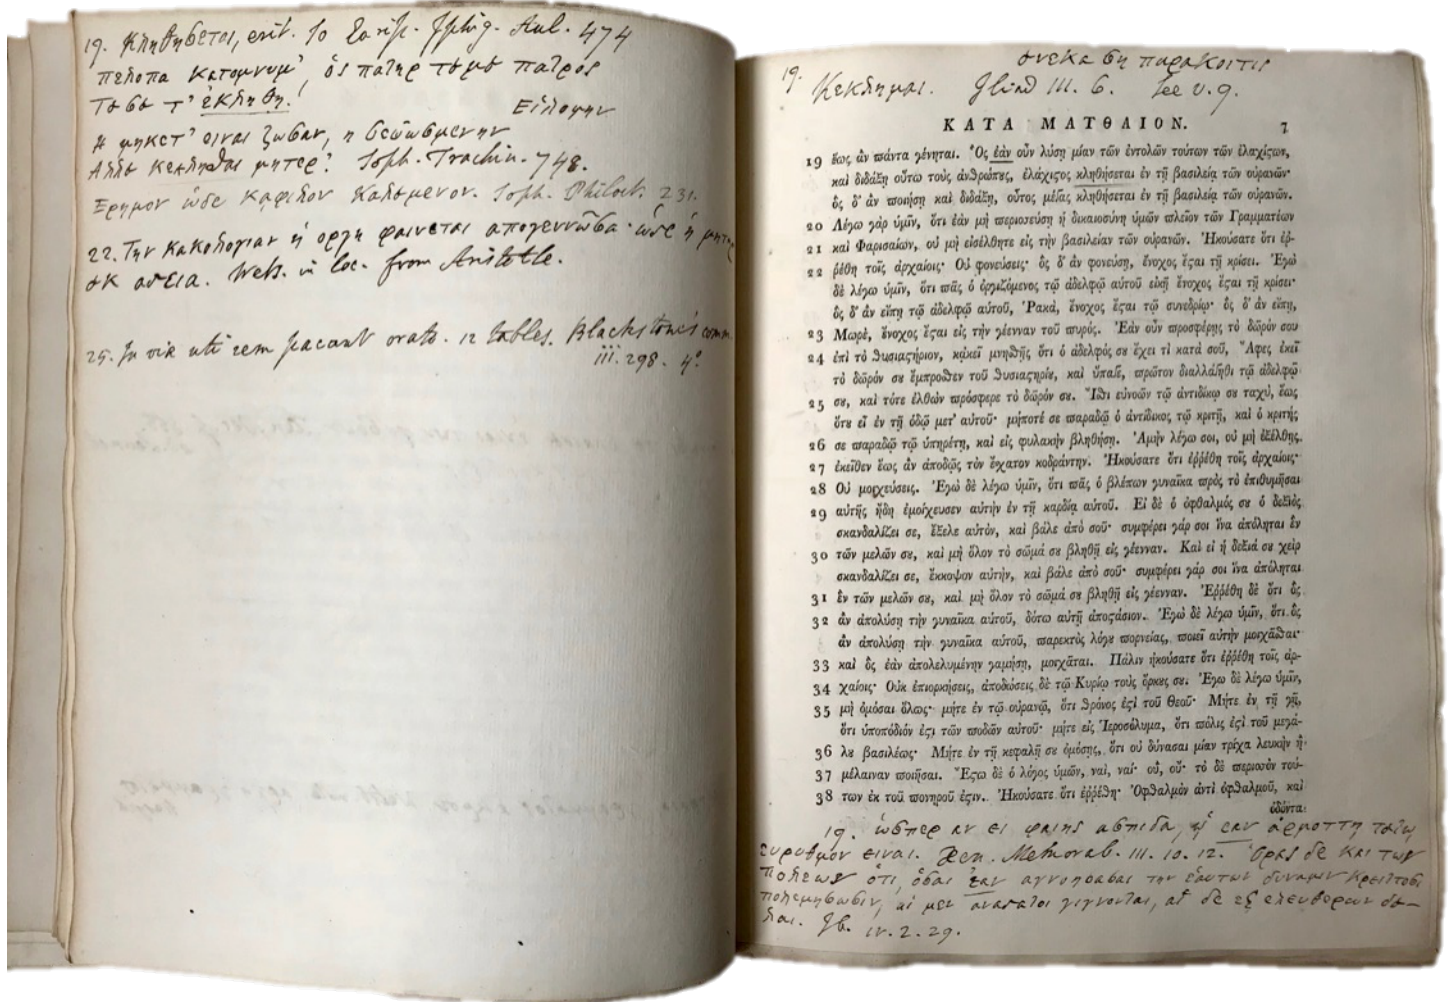 19. Κληθησεται, erit. So Eurip. Iphig. Aul. 474
πελοπα κατομνυμ', ὁς πατηρ τουμου πατρος
Του σου τ' ἐκληθη.
Ειλομην
Η μηκετ' ειναι ζωσαν, η σεσωσμενην
Αλλου κεκλησθαι μητερ'. Soph. Trachin. 748.
Ερημον ὡδε καφιλον καλουμενον. Soph. Philoct. 231.
22. Την κακολογιαν ἡ οργη φαινεται απογεννῶσα· ὡςε ἡ μητηρ
ουκ αςεια. Wets. in loc. from Aristotle.
25. In via uti rem pacunt orato. 12 tables. Blackstone's comm.
iii. 298. 4º.
ουνεκα ση παρακοιτις
19. Κεκλημαι. Iliad III. 6. See v. 9.
ΚΑΤΑ ΜΑΤΘΑΙΟΝ. 7
19 ἕως ἂν πάντα γένηται. Ὃς ἐὰν οὖν λύσῃ μίαν τῶν ἐντολῶν τούτων τῶν ἐλαχίςων,
καὶ διδάξῃ οὕτω τοὺς ἀνθρώπȣς, ἐλάχιςος κληθήσεται ἐν τῇ βασιλείᾳ τῶν οὐρανῶν·
ὃς δ' ἂν ποιήσῃ καὶ διδάξῃ, οὗτος μέγας κληθήσεται ἐν τῇ βασιλείᾳ τῶν οὐρανῶν.
20 Λέγω γὰρ ὑμῖν, ὅτι ἐὰν μὴ περισσεύσῃ ἡ δικαιοσύνη ὑμῶν πλεῖον τῶν Γραμματέων
21 καὶ Φαρισαίων, οὐ μὴ εἰσέλθητε εἰς τὴν βασιλείαν τῶν οὐρανῶν. Ἠκούσατε ὅτι ἐρ-
22 ῥέθη τοῖς ἀρχαίοις· Οὐ φονεύσεις· ὃς δ' ἂν φονεύσῃ, ἔνοχος ἔςαι τῇ κρίσει. Ἐγὼ
δὲ λέγω ὑμῖν, ὅτι πᾶς ὁ ὀργιζόμενος τῷ ἀδελφῷ αὐτοῦ εἰκῆ ἔνοχος ἔςαι τῇ κρίσει·
ὃς δ' ἂν εἴπῃ τῷ ἀδελφῷ αὐτοῦ, Ῥακὰ, ἔνοχος ἔςαι τῷ συνεδρίῳ· ὃς δ' ἂν εἴπῃ,
23 Μωρὲ, ἔνοχος ἔςαι εἰς τὴν γέενναν τοῦ πυρός. Ἐὰν οὖν προσφέρῃς τὸ δῶρόν σου
24 ἐπὶ τὸ θυσιαςήριον, κᾀκεῖ μνησθῇς ὅτι ὁ ἀδελφός σȣ ἔχει τὶ κατὰ σοῦ, Ἄφες ἐκεῖ
τὸ δῶρόν σȣ ἔμπροσθεν τοῦ θυσιαςηρίȣ, καὶ ὕπαγε, πρῶτον διαλλάγηθι τῷ ἀδελφῷ
25 σȣ, καὶ τότε ἐλθὼν πρόσφερε τὸ δῶρόν σȣ. Ἴσθι εὐνοῶν τῷ ἀντιδίκῳ σȣ ταχὺ, ἕως
ὅτȣ εἶ ἐν τῇ ὁδῷ μετ' αὐτοῦ· μήποτέ σε παραδῷ ὁ ἀντίδικος τῷ κριτῇ, καὶ ὁ κριτής
26 σε παραδῷ τῷ ὑπηρέτῃ, καὶ εἰς φυλακὴν βληθήσῃ. Ἀμὴν λέγω σοι, οὐ μὴ ἐξέλθῃς
27 ἐκεῖθεν ἕως ἂν ἀποδῷς τὸν ἔσχατον κοδράντην. Ἠκούσατε ὅτι ἐρῥέθη τοῖς ἀρχαίοις·
28 Οὐ μοιχεύσεις. Ἐγὼ δὲ λέγω ὑμῖν, ὅτι πᾶς ὁ βλέπων γυναῖκα πρὸς τὸ ἐπιθυμῆσαι
29 αὐτῆς ἤδη ἐμοίχευσεν αὐτὴν ἐν τῇ καρδίᾳ αὑτοῦ. Εἰ δὲ ὁ ὀφθαλμός σȣ ὁ δεξιὸς
σκανδαλίζει σε, ἔξελε αὐτὸν, καὶ βάλε ἀπὸ σοῦ· συμφέρει γάρ σοι ἵνα ἀπόληται ἓν
30 τῶν μελῶν σȣ, καὶ μὴ ὅλον τὸ σῶμά σȣ βληθῇ εἰς γέενναν. Καὶ εἰ ἡ δεξιά σȣ χεὶρ
σκανδαλίζει σε, ἔκκοψον αὐτὴν, καὶ βάλε ἀπὸ σοῦ· συμφέρει γάρ σοι ἵνα ἀπόληται
31 ἓν τῶν μελῶν σȣ, καὶ μὴ ὅλον τὸ σῶμά σȣ βληθῇ εἰς γέενναν. Ἐῤῥέθη δὲ ὅτι ὃς
32 ἂν ἀπολύσῃ τὴν γυναῖκα αὑτοῦ, δότω αὐτῇ ἀποςάσιον. Ἐγὼ δὲ λέγω ὑμῖν, ὅτι ὃς
ἂν ἀπολύσῃ τὴν γυναῖκα αὑτοῦ, παρεκτὸς λόγȣ πορνείας, ποιεῖ αὐτὴν μοιχᾶσθαι·
33 καὶ ὃς ἐὰν ἀπολελυμένην γαμήσῃ, μοιχᾶται. Πάλιν ἠκούσατε ὅτι ἐῤῥέθη τοῖς ἀρ-
34 χαίοις· Οὐκ ἐπιορκήσεις, ἀποδώσεις δὲ τῷ Κυρίῳ τοὺς ὅρκȣς σȣ. Ἐγὼ δὲ λέγω ὑμῖν,
35 μὴ ὀμόσαι ὅλως· μήτε ἐν τῷ οὐρανῷ, ὅτι θρόνος ἐςὶ τοῦ Θεοῦ· Μήτε ἐν τῇ γῇ,
ὅτι ὑποπόδιόν ἐςι τῶν ποδῶν αὐτοῦ· μήτε εἰς Ἱεροσόλυμα, ὅτι πόλις ἐςὶ τοῦ μεγά-
36 λȣ βασιλέως· Μήτε ἐν τῇ κεφαλῇ σȣ ὀμόσῃς, ὅτι οὐ δύνασαι μίαν τρίχα λευκὴν ἢ
37 μέλαιναν ποιῆσαι. Ἔςω δὲ ὁ λόγος ὑμῶν, ναὶ, ναί· οὒ, οὔ· τὸ δὲ περισσὸν τού-
38 των ἐκ τοῦ πονηροῦ ἐςιν. Ἠκούσατε ὅτι ἐῤῥέθη· Ὀφθαλμὸν ἀντὶ ὀφθαλμοῦ, καὶ
ὀδόντα
19. ὡσπερ αν ει φαιης ασπιδα, ᾡ εαν ἁρμοττη τουτῳ
ευρυθμον ειναι. Xen. Memorab. III. 10. 12. Ὁρας δε και των
πολεων ὁτι, ὁσαι εαν αγνοησασαι την ἑαυτων δυναμιν κρειττοσι
πολεμησωσιν, αἱ μεν αναςατοι γιγνονται, αἱ δε εξ ελευθερων δου-
λαι. Ib. IV. 2. 29.